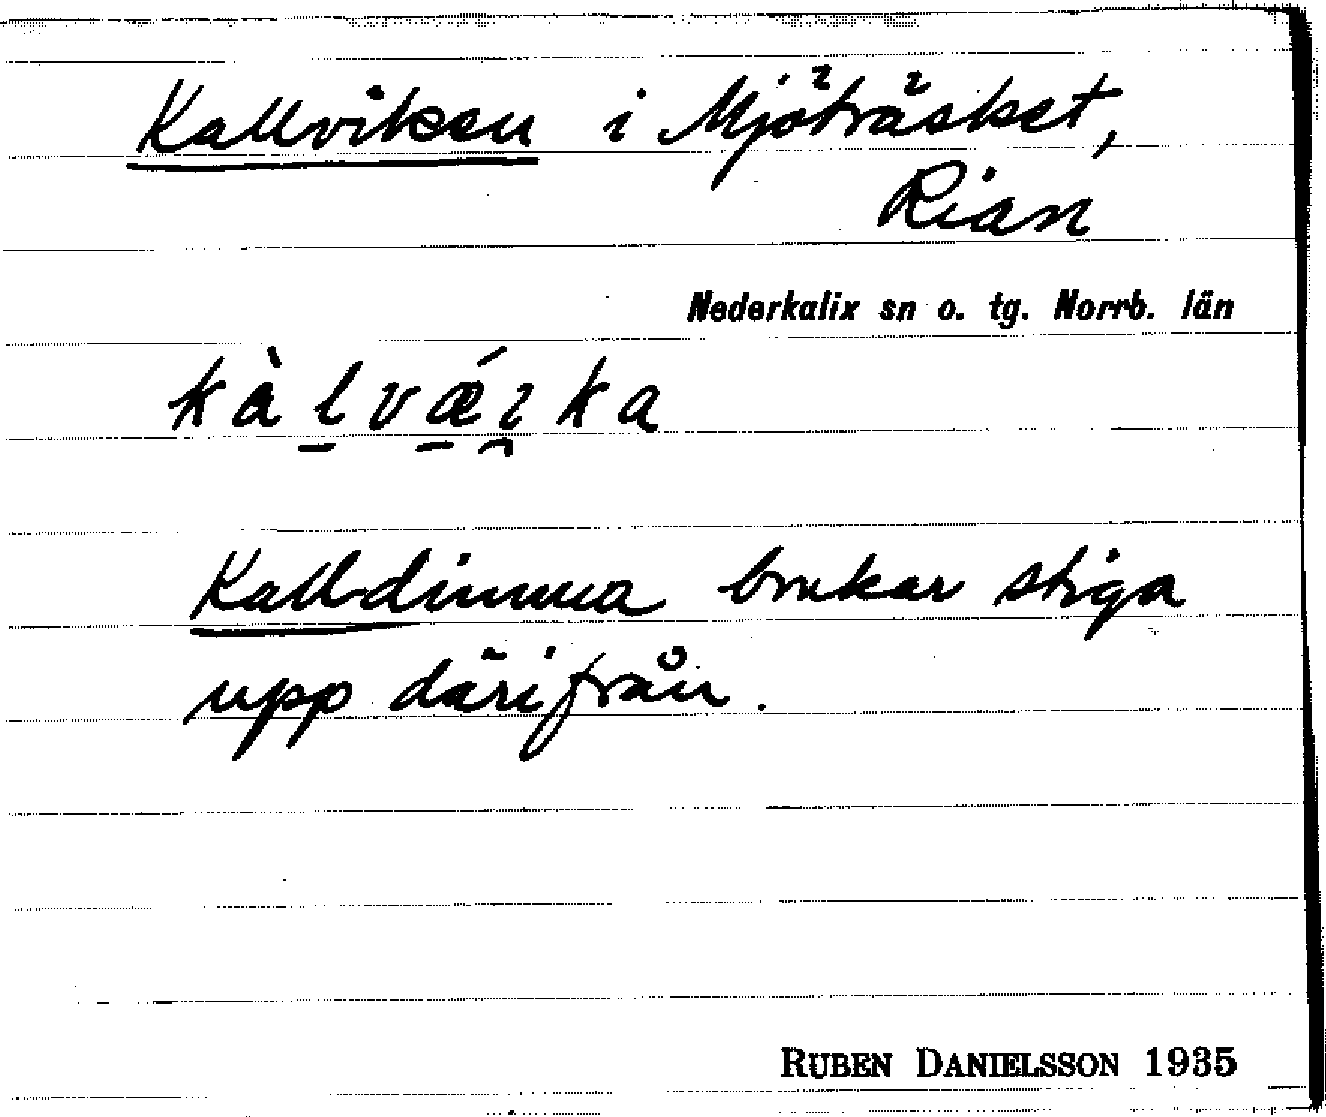 Kallviken i Mjöträsket,
Rian
Nederkalix sn o. tg. Norrb. län
kàl̠vǽ̠ɪ̯ka
Kall-dimma brukar stiga
upp därifrån.
RUBEN DANIELSSON 1935